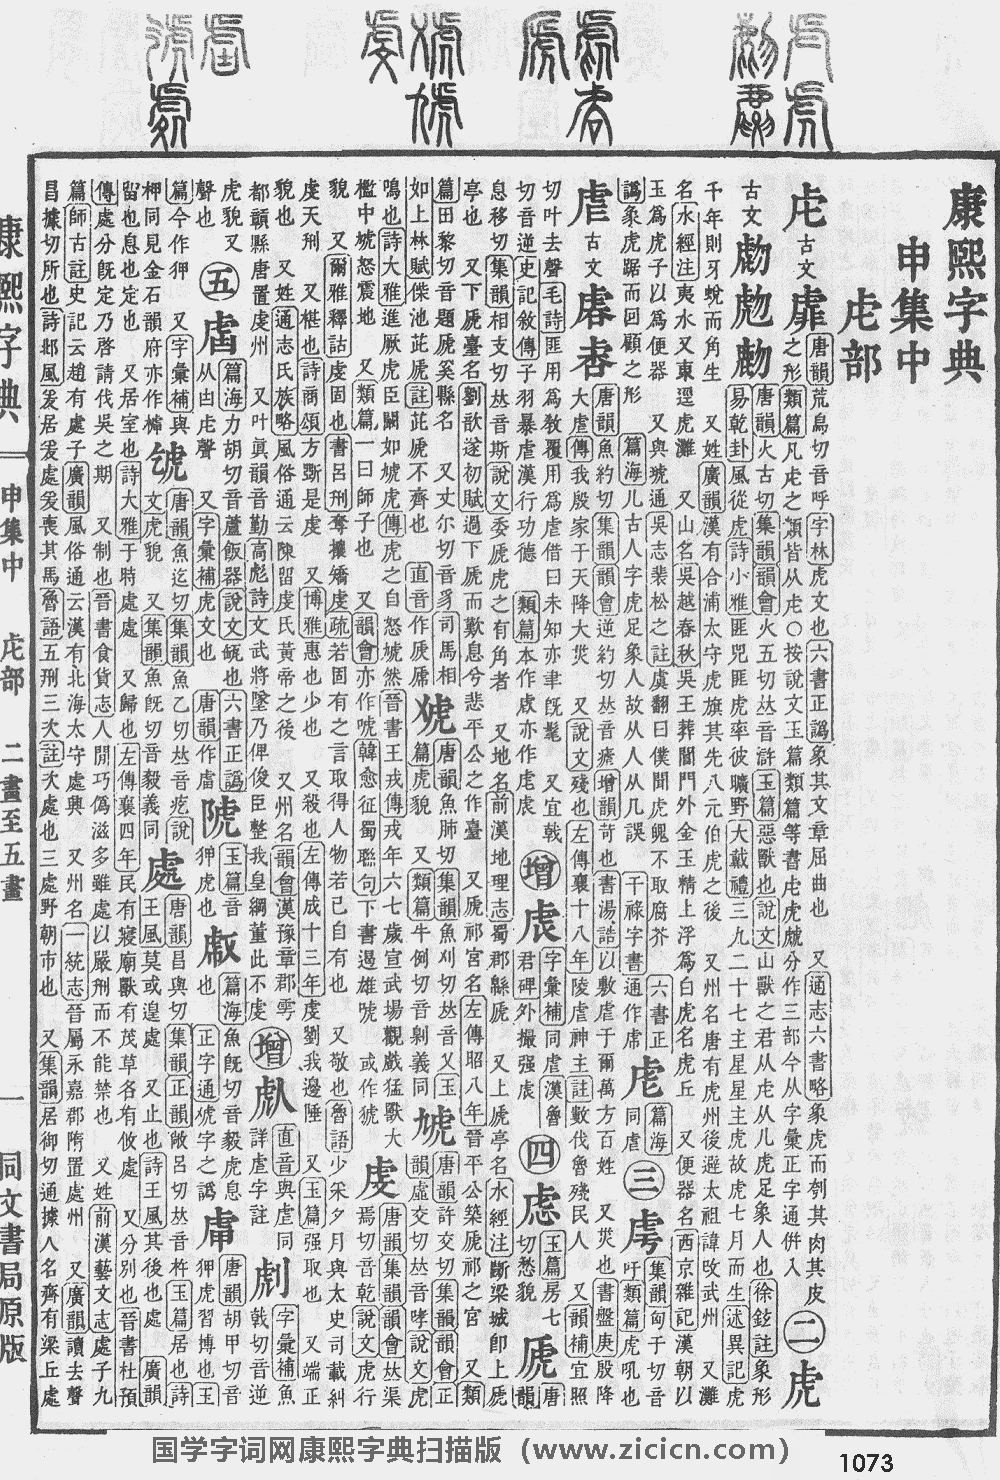 康熙字典
申集中
虍部
虍 古文 【唐韻】荒烏切音呼【字林】虎文也【六書正譌】象其文章屈曲也 又【通志六書略】象虎而刳其肉其皮
之形【類篇】凡虍之類皆从虍○按說文玉篇類篇等書虍虎虤分作三部今从字彙正字通倂入 ㊁虎
古文 【唐韻】火古切【集韻】【韻會】火五切𠀤音滸【玉篇】惡獸也【說文】山獸之君从虍从儿虎足象人也【徐鉉註】象形
【易乾卦】風從虎【詩小雅】匪兕匪虎率彼曠野【大戴禮】三九二十七主星星主虎故虎七月而生【述異記】虎
千年則牙蛻而角生 又姓【廣韻】漢有合浦太守虎旗其先八元伯虎之後 又州名唐有虎州後避太祖諱攺武州 又灘
名【水經注】夷水又東逕虎灘 又山名【吳越春秋】吳王葬闔閭門外金玉精上浮爲白虎名虎丘 又便器名【西京雜記】漢朝以
玉爲虎子以爲便器 又與琥通【吳志裴松之註】虞翻曰僕聞虎魄不取腐芥 【干祿字書】通作 【六書正
譌】象虎踞而回顧之形 【篇海】儿古人字虎足象人故从人从几誤
【篇海】同虐 ㊂虖 【集韻】匈于切音吁【類篇】虎吼也
虐 古文 【唐韻】魚約切【集韻】【韻會】逆約切𠀤音瘧【增韻】苛也【書湯誥】以敷虐于爾萬方百姓 又災也【書盤庚】殷降
大虐【傳】我殷家于天降大災 又【說文】殘也【左傳襄十八年】陵虐神主【註】數伐魯殘民人 又【韻補】宜照
切叶去聲【毛詩】匪用爲敎覆用爲虐借曰未知亦聿旣髦 又宜戟
切音逆【史記敘傳】子羽暴虐漢行功德 【類篇】本作 亦作
㊞增 【字彙補】同虐漢魯
君碑外撮强虐 ㊃虙 【玉篇】房七
切愁貌 虒 【唐韻】
息移切【集韻】相支切𠀤音斯【說文】委虒虎之有角者 又地名【前漢地理志】蜀郡縣虒 又上虒亭名【水經注】斷梁城卽上虒
亭也 又下虒臺名【劉歆遂初賦】過下虒而歎息兮悲平公之作臺 又虒祁宮名【左傳昭八年】晉平公築虒祁之宮 又【類
篇】田黎切音題虒奚縣名 又丈尒切音豸司馬相
如上林賦傑池茈虒【註】茈虒不齊也 【直音】作
虓 【唐韻】許交切【集韻】【韻會】【正
韻】虛交切𠀤音哮【說文】虎
鳴也【詩大雅】進厥虎臣闞如虓虎【傳】虎之自怒虓然【晉書王戎傳】戎年六七歲宣武場觀戲猛獸大
檻中虓怒震地 又【類篇】一曰師子也 又【韻會】亦作唬【韓愈征蜀聯句】下書遏雄虓 或作猇
虔 【唐韻】【集韻】【韻會】𠀤渠
焉切音乾【說文】虎行
貌 又【爾雅釋詁】虔固也【書呂刑】奪攘矯虔【疏】若固有之言取得人物若已自有也 又敬也【魯語】少采夕月與大史司載糾
虔天刑 又椹也【詩商頌】方斲是虔 又【博雅】惠也少也 又殺也【左傳成十三年】虔劉我邊陲 又【玉篇】强取也 又端正
貌也 又姓【通志氏族略】風俗通云陳留虔氏黃帝之後 又州名【韻會】漢豫章郡雩
都贛縣唐置虔州 又叶眞韻音勤【高彪詩】文武將墜乃俾俊臣整我皇綱董此不虔
㊞增 【直音】與虐同
詳虐字註 【字彙補】魚
戟切音逆
虎貌又
聲也 ㊄ 【篇海】力胡切音蘆飯器【說文】㼖也
从甶虍聲 又【字彙補】虎文也 【六書正譌】
【唐韻】作 【玉篇】音
狎虎也 【篇海】魚旣切音毅虎息
也 【正字通】虓字之譌 【唐韻】胡甲切音
狎虎習搏也【玉
篇】今作狎 又【字彙補】與
柙同見金石韻府亦作㯓 【唐韻】魚迄切【集韻】魚乙切𠀤音疙【說
文】虎貌 又【集韻】魚旣切音毅義同 處 【唐韻】昌與切【集韻】【正韻】敞呂切𠀤音杵【玉篇】居也【詩
王風】莫或遑處 又止也【詩王風】其後也處 【廣韻】
留也息也定也 又居室也【詩大雅】于時處處 又歸也【左傳襄四年】民有寢廟獸有茂草各有攸處 又分別也【晉書杜預
傳】處分旣定乃啓請伐吳之期 又制也【晉書食貨志】人閒巧僞滋多雖處以嚴刑而不能禁也 又姓【前漢藝文志】處子九
篇【師古註】史記云趙有處子【廣韻】風俗通云漢有北海太守處興 又州名【一統志】晉屬永嘉郡隋置處州 又【廣韻】讀去聲
昌據切所也【詩邶風】爰居爰處爰喪其馬【魯語】五刑三次【註】次處也三處野朝市也 又【集韻】居御切通據人名齊有梁丘處
康熙字典 申集中 虍部 二畫至五畫 一 同文書局原版
国学字词网康熙字典扫描版（www.zicicn.com）
1073